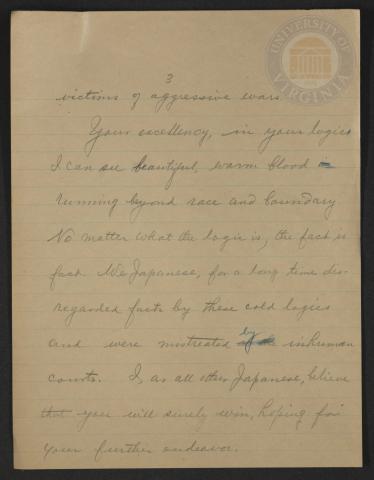 3
victims of aggressive wars.
Your excellency, in your logics
I can see beautiful, warm blood is
running beyond race and boundary.
No matter what the logic is, the fact is
fact. We Japanese, for a long time dis-
regarded facts by these cold logics
and were mistreated by inhuman
courts. I, as all other Japanese, believe
that you will surely win, hoping for
your further endeavor.
UNIVERSITY OF VIRGINIA